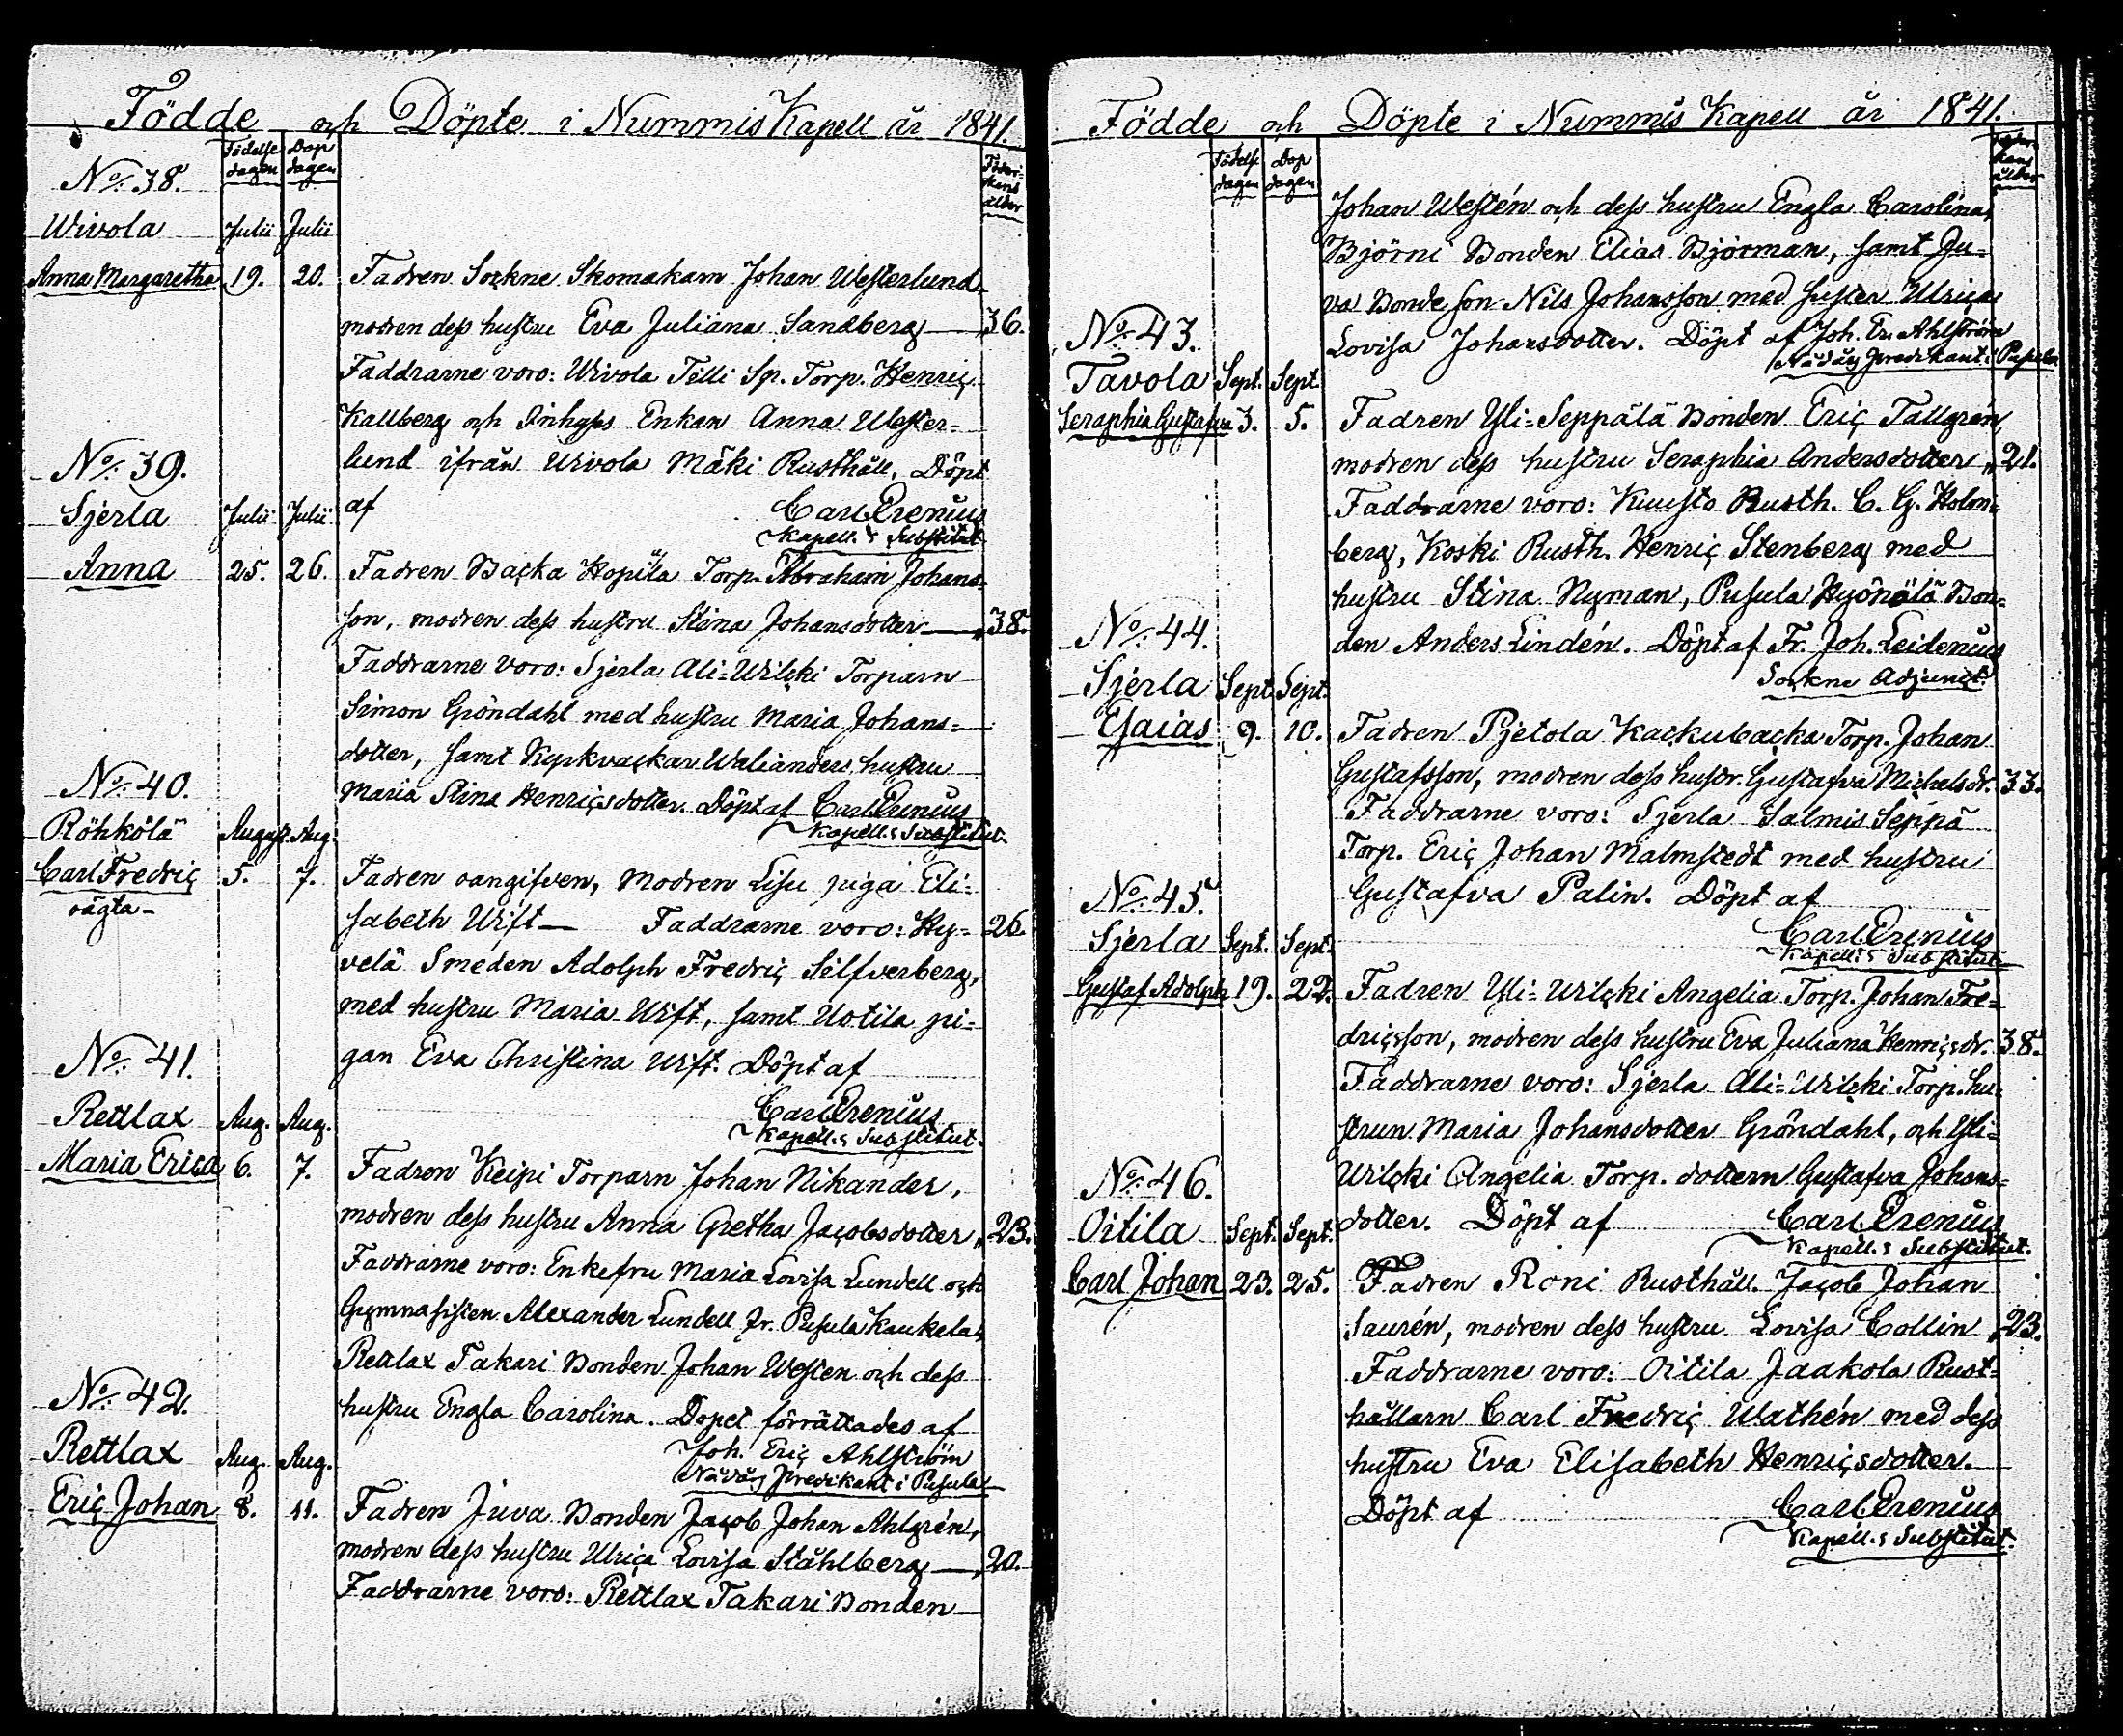 Födde och Döpte i Nummis Kapell år 1841.
Födelse dagen
Dop dagen
Föder- skans ålder
No. 38.
Wivola Julii Julii
Anna Margaretha 19. 20. Fadren Sockne Skomakarn Johan Westerlund
modren dess hustru Eva Juliana Sandberg — 36.
Faddrarne voro: Wivola Tilli Sp. Torp. Henric
Kallberg och Inhyses Enkan Anna Wester-
lund ifrån Wivola Mäki Rusthåll. Döpt
af Carl Prenius
Kapell.s Substitut.
No. 39.
Sjerla Julii Julii
Anna 25. 26. Fadren Backa Hopila Torp. Abraham Johans-
son, modren dess hustru Stina Johansdotter — 38.
Faddrarne voro: Sjerla Ali-Wilcki Torparn
Simon Gröndahl med hustru Maria Johans-
dotter, samt Kyrkvacktar Walianders hustru
Maria Stina Henricsdotter. Döpt af Carl Prenius
Kapell.s Substitut.
No. 40.
Röhkölä August. Aug.
Carl Fredric 5. 7. Fadren oangifven, Modren Lisu piga Eli-
oägta
sabeth Wift — Faddrarne voro: Hy- 26.
velä Smeden Adolph Fredric Silfverberg,
med hustru Maria Wift, samt Uotila pi-
gan Eva Christina Wift. Döpt af
Carl Prenius
Kapell.s Substitut.
No. 41.
Rettlax Aug. Aug.
Maria Erica 6. 7. Fadren Keipi Torparn Johan Nikander,
modren dess hustru Anna Gretha Jacobsdotter „ 23.
Faddrarne voro: Enkefru Maria Lovisa Lundell och
Gymnasisten Alexander Lundell fr. Pusula Kaukela,
Rettlax Takari Bonden Johan Westen och dess
hustru Engla Carolina. Dopet förrättades af
Joh. Eric Ahlström
Nådårs Predikant i Pusula
No. 42.
Rettlax Aug. Aug.
Eric Johan 8. 11. Fadren Juva Bonden Jacob Johan Ahlgrén,
modren dess hustru Ulrica Lovisa Ståhlberg — 20.
Faddrarne voro: Rettlax Takari Bonden
Födde och Döpte i Nummis Kapell år 1841.
Födelse dagen
Dop dagen
ålder
Johan Westén och dess hustru Engla Carolina,
Björni Bonden Elias Björman, samt Ju-
va Bonde son Nils Johansson med syster Ulrica
Lovisa Johansdotter. Döpt af Joh. Er. Ahlström
Nådårs predikant i Pusula
No. 43.
Tavola Sept. Sept.
Seraphia Gustafva 3. 5. Fadren Yli-Seppälä Bonden Eric Tallgrén,
modren dess hustru Seraphia Andersdotter „ 21.
Faddrarne voro: Kuusto Rusth. C. G. Holm-
berg, Koski Rusth. Henric Stenberg med
hustru Stina Nyman, Pusula Hyönälä Bon-
den Anders Lindén. Döpt af Fr. Joh. Leidenius
Sockne Adjunct.
No. 44.
Sjerla Sept. Sept.
Esaias 9. 10. Fadren Pjetola Kackubacka Torp. Johan
Gustafsson, modren dess hustr. Gustafva Michelsdr. 33.
Faddrarne voro: Sjerla Salmis Seppä
Torp. Eric Johan Malmstedt med hustru
Gustafva Palin. Döpt af
Carl Prenius
Kapell.s Substitut
No. 45.
Sjerla Sept. Sept.
Gustaf Adolph 19. 22. Fadren Yli-Wilcki Angelia Torp. Johan Fre-
dricsson, modren dess hustru Eva Juliana Henricsdr. 38.
Faddrarne voro: Sjerla Ali-Wilcki Torp. hu-
strun Maria Johansdotter Gröndahl, och Yli-
Wilcki Angelia Torp. dottern Gustafva Johans-
dotter. Döpt af Carl Prenius
Kapell.s Substitut.
No. 46.
Oitila Sept. Sept.
Carl Johan 23. 25. Fadren Roni Rusthåll. Jacob Johan
Saurén, modren dess hustru Lovisa Collin „ 23.
Faddrarne voro: Oitila Jaakola Rust-
hållarn Carl Fredric Wathén med dess
hustru Eva Elisabeth Henricsdotter.
Döpt af Carl Prenius
Kapell.s Substitut.